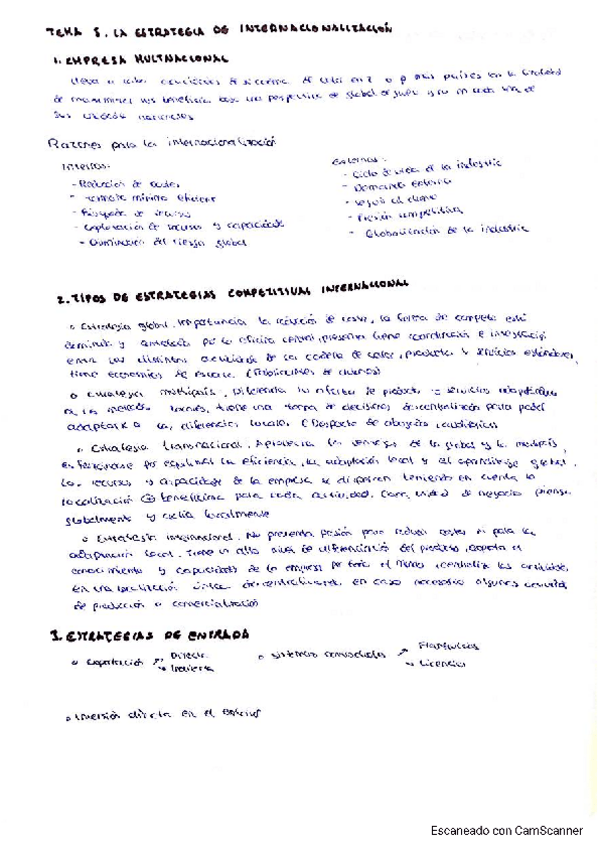 TEMA 5. LA ESTRATEGIA DE INTERNACIONALIZACIÓN
1. EMPRESA MULTNACIONAL
lleva a cabo actividades de en 2 o más países en la
de maximizar sus beneficios bajo una perspectiva de global de grupo y no en cada una de
sus nacionales
Razones para la internacionalización
Internas:
- Reducción de costes
- Tamaño mínimo eficiente
- Búsqueda de recursos
- Explotación de recursos y capacidades
- Disminución del riesgo global
Externas:
- Ciclo de vida de la industria
- Demanda externa
- Seguir al cliente
- Presión competitiva
- Globalización de la industria
2. TIPOS DE ESTRATEGIAS COMPETITIVAS INTERNACIONAL
• Estrategia global. Importancia la reducción de costes, la forma de competir está
y por la oficina central, presenta coordinación e integración
entre las distintas actividades de la cadena de valor, productos y servicios estándares,
tiene economías de escala. (Fabricantes de)
• Estrategia multipaís. Diferencia su oferta de productos y servicios adaptándose
a los mercados, tiene una toma de decisiones descentralizada para poder
adaptarse a las diferencias locales. (Despacho de abogados, auditorías)
• Estrategia transnacional. Aprovecha las ventajas de la global y la multipaís,
por la eficiencia, la adaptación local y el aprendizaje global.
Los recursos y capacidades de la empresa se dispersan teniendo en cuenta la
localización ⊕ beneficiosa para cada actividad. Cada unidad de negocio piensa
globalmente y actúa localmente
• Estrategia internacional. No presenta presión para reducir costes ni para la
adaptación local. Tiene un alto nivel de diferenciación del producto, el
conocimiento y capacidades de la empresa por todo el mundo, centraliza las actividades
en una localización única descentralizando, en caso necesario algunas
de producción o comercialización
3. ESTRATEGIAS DE ENTRADA
• Exportación → Directa
→ Indirecta
• Sistemas contractuales → Franquicias
→ Licencias
• Inversión directa en el exterior
Escaneado con CamScanner